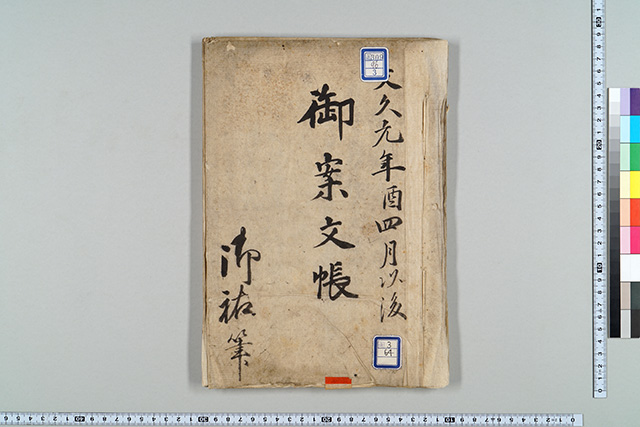 文久元年酉四月以後
御案文帳
御祐筆
3
64